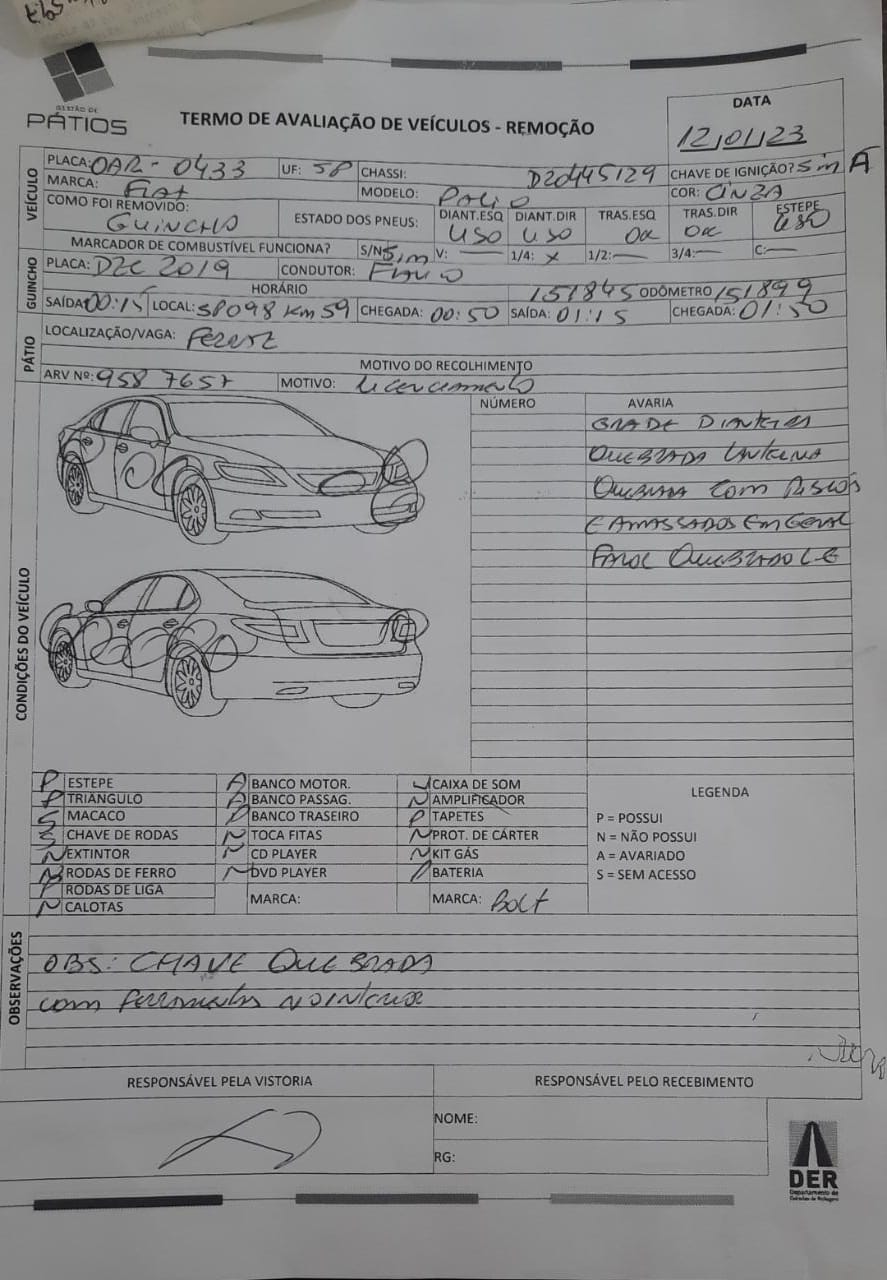 GESTÃO DE
PÁTIOS
TERMO DE AVALIAÇÃO DE VEÍCULOS - REMOÇÃO
DATA
12/01/23
VEÍCULO
PLACA: OAR - 0433 UF: SP CHASSI: D20445129 CHAVE DE IGNIÇÃO? Sim A
MARCA: Fiat MODELO: Palio COR: CINZA
COMO FOI REMOVIDO: GUINCHO ESTADO DOS PNEUS: DIANT.ESQ USO DIANT.DIR USO TRAS.ESQ OK TRAS.DIR OK ESTEPE USO
MARCADOR DE COMBUSTÍVEL FUNCIONA? S/N: Sim V: — 1/4: x 1/2: — 3/4: — C: —
GUINCHO
PLACA: DZC 2019 CONDUTOR:
HORÁRIO 151845 ODÔMETRO 151899
SAÍDA: 00:15 LOCAL: SP098 Km 59 CHEGADA: 00:50 SAÍDA: 01:15 CHEGADA: 01:50
PÁTIO
LOCALIZAÇÃO/VAGA:
MOTIVO DO RECOLHIMENTO
ARV Nº: 958 7657 MOTIVO: Licenciamento
CONDIÇÕES DO VEÍCULO
NÚMERO AVARIA
GRADE DIANTEIRA
QUEBRADA LANTERNA
QUEBRADA COM RISCOS
E AMASSADOS EM GERAL
FAROL QUEBRADO L E
P ESTEPE A BANCO MOTOR. CAIXA DE SOM
P TRIANGULO A BANCO PASSAG. N AMPLIFICADOR
S MACACO P BANCO TRASEIRO P TAPETES
S CHAVE DE RODAS N TOCA FITAS N PROT. DE CÁRTER
N EXTINTOR N CD PLAYER N KIT GÁS
N RODAS DE FERRO N DVD PLAYER P BATERIA
P RODAS DE LIGA MARCA: MARCA: Bolt
N CALOTAS
LEGENDA
P = POSSUI
N = NÃO POSSUI
A = AVARIADO
S = SEM ACESSO
OBSERVAÇÕES
OBS: CHAVE QUEBRADA
com
RESPONSÁVEL PELA VISTORIA RESPONSÁVEL PELO RECEBIMENTO
NOME:
RG:
DER
Departamento de
Estradas de Rodagem